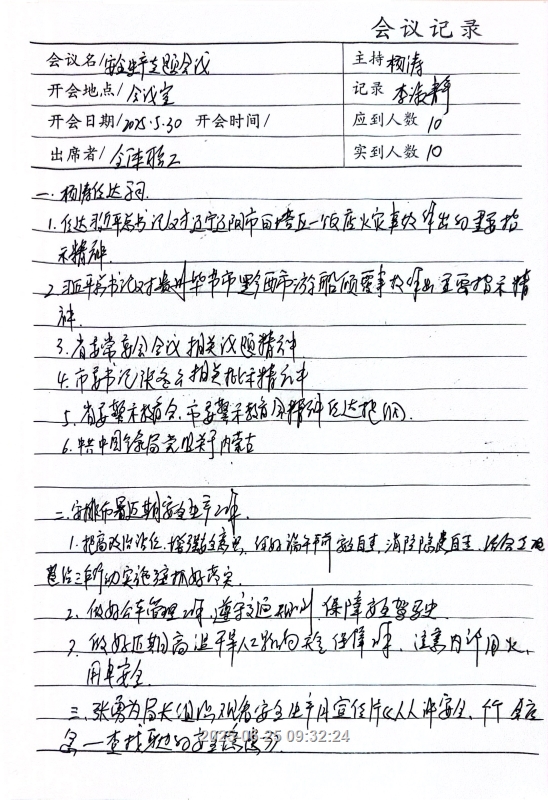 会议记录
会议名/安全生产主题会议 主持 杨涛
开会地点/会议室 记录 李淑静
开会日期/2025.5.30 开会时间/ 应到人数 10
出席者/全体职工 实到人数 10
一. 杨涛传达
1. 传达习近平总书记对辽宁辽阳市白塔区一饭店火灾事故作出的重要指
示精神.
2. 习近平总书记对贵州毕节市黔西市游船倾覆事故作出重要指示精
神.
3. 省委常委会会议相关议题精神
4. 市委书记 相关批示精神
5. 省委警示教育会、市委警示教育会精神传达
6. 中共中国 局党组关于内蒙古
二. 安排布署近期安全生产工作.
1. 提高政治站位, 增强安全意识, 做好端午节前 自查, 消防隐患自查, 结合工程
治三年行动实施 抓好落实.
2. 做好公车管理工作, 遵守交通规则, 保障安全驾驶
3. 做好近期高 人工 安全保障工作. 注意内部用火、
用电安全
三. 张勇为局长组织观看安全生产月宣传片《人人讲安全、个个会应
急—查找身边的安全隐患》.
2025-06-25 09:32:24